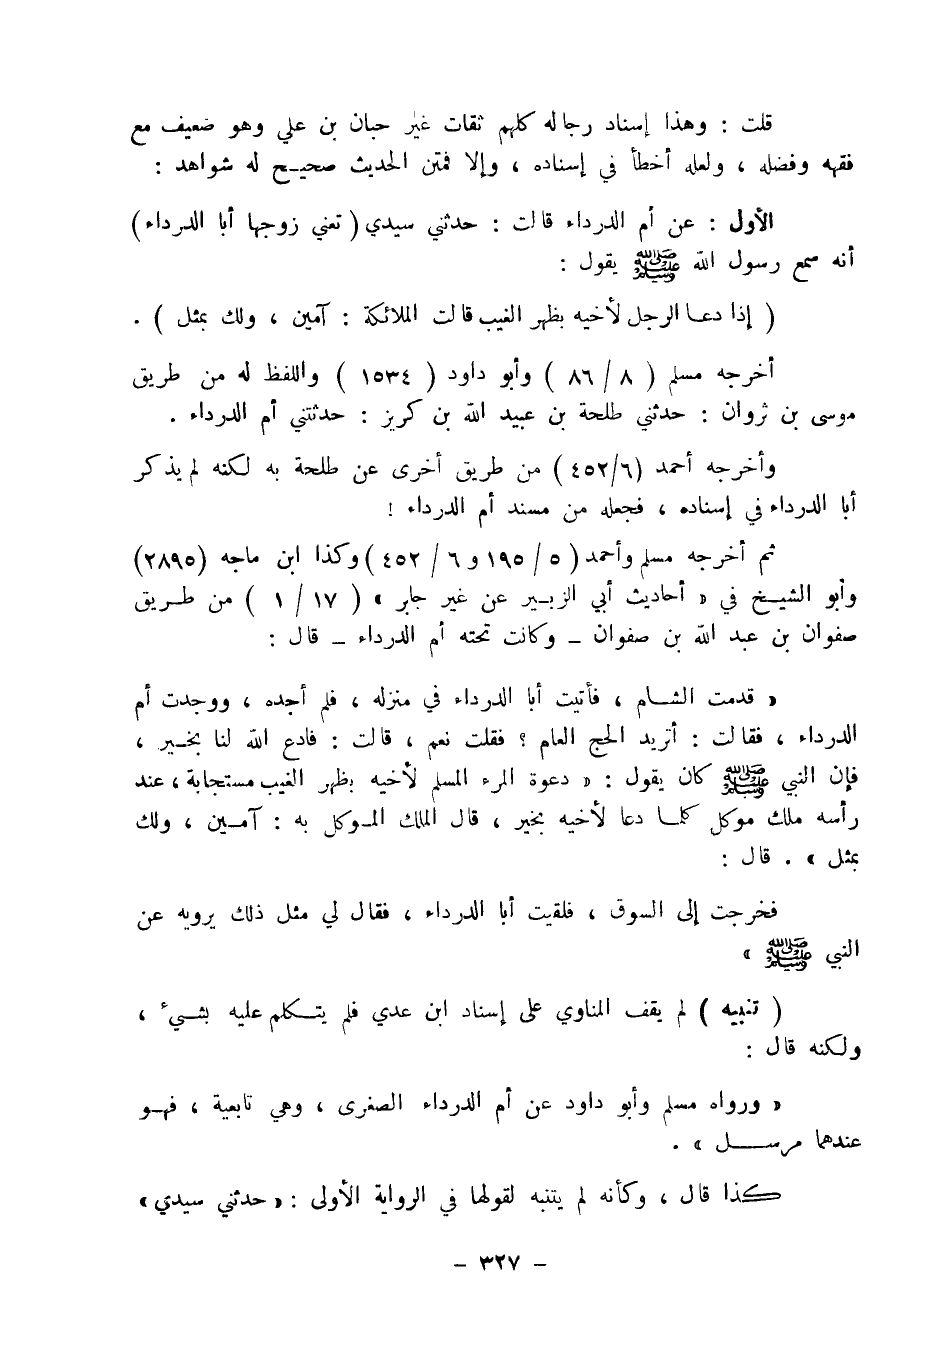 قلت : وهذا إسناد رجاله كلهم ثقات غير حبان بن علي وهو ضعيف مع
فقهه وفضله ، ولعله أخطأ في إسناده ، وإلا فمتن الحديث صحيح له شواهد :
الأول : عن أم الدرداء قالت : حدثني سيدي ( تعني زوجها أبا الدرداء )
أنه سمع رسول الله ﷺ يقول :
( إذا دعا الرجل لأخيه بظهر الغيب قالت الملائكة : آمين ، ولك بمثل ) .
أخرجه مسلم ( ٨ / ٨٦ ) وأبو داود ( ١٥٣٤ ) واللفظ له من طريق
موسى بن ثروان : حدثني طلحة بن عبيد الله بن كريز : حدثتني أم الدرداء .
وأخرجه أحمد (٦/ ٤٥٢ ) من طريق أخرى عن طلحة به لكنه لم يذكر
أبا الدرداء في إسناده ، فجعله من مسند أم الدرداء !
ثم أخرجه مسلم وأحمد ( ٥ / ١٩٥ و ٦ / ٤٥٢ ) وكذا ابن ماجه (٢٨٩٥)
وأبو الشيخ في « أحاديث أبي الزبير عن غير جابر » ( ١٧ / ١ ) من طريق
صفوان بن عبد الله بن صفوان – وكانت تحته أم الدرداء – قال :
« قدمت الشام ، فأتيت أبا الدرداء في منزله ، فلم أجده ، ووجدت أم
الدرداء ، فقالت : أتريد الحج العام ؟ فقلت نعم ، قالت : فادع الله لنا بخير ،
فإن النبي ﷺ كان يقول : « دعوة المرء المسلم لأخيه بظهر الغيب مستجابة ، عند
رأسه ملك موكل كلما دعا لأخيه بخير ، قال الملك الموكل به : آمين ، ولك
بمثل » . قال :
فخرجت إلى السوق ، فلقيت أبا الدرداء ، فقال لي مثل ذلك يرويه عن
النبي ﷺ »
( تنبيه ) لم يقف المناوي على إسناد ابن عدي فلم يتكلم عليه بشيء ،
ولكنه قال :
« ورواه مسلم وأبو داود عن أم الدرداء الصغرى ، وهي تابعية ، فهو
عندهما مرسل » .
كذا قال ، وكأنه لم يتنبه لقولها في الرواية الأولى : « حدثني سيدي »
– ٣٢٧ –